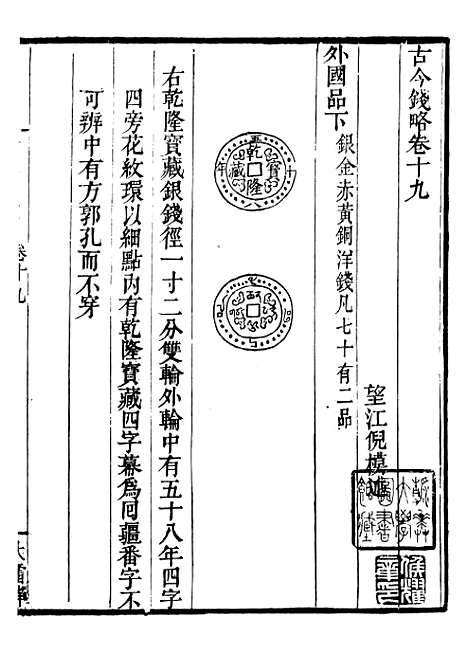 古今錢略卷十九
望江倪模述
外國品下 銀金赤黃銅洋錢凡七十有二品
乾隆寶藏
五十八年
右乾隆寶藏銀錢徑一寸二分雙輪外輪中有五十八年四字
四旁花紋環以細點內有乾隆寶藏四字幕爲囘疆番字不
可辨中有方郭孔而不穿
卷十九